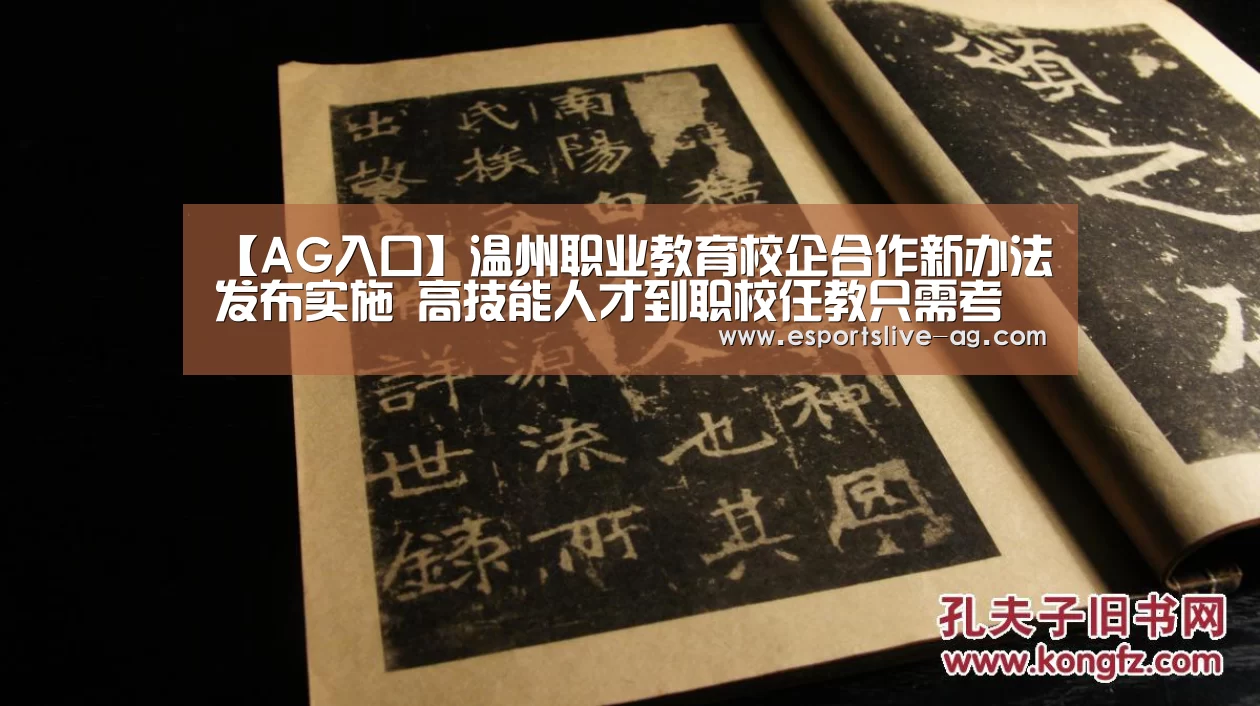 【AG入口】温州职业教育校企合作新办法
发布实施 高技能人才到职校任教只需考
www.esportslive-ag.com
頌
猛
神冏
南陽白
人也其
氏族分
源流所
出故
詳世錄
孔夫子旧书网
www.kongfz.com